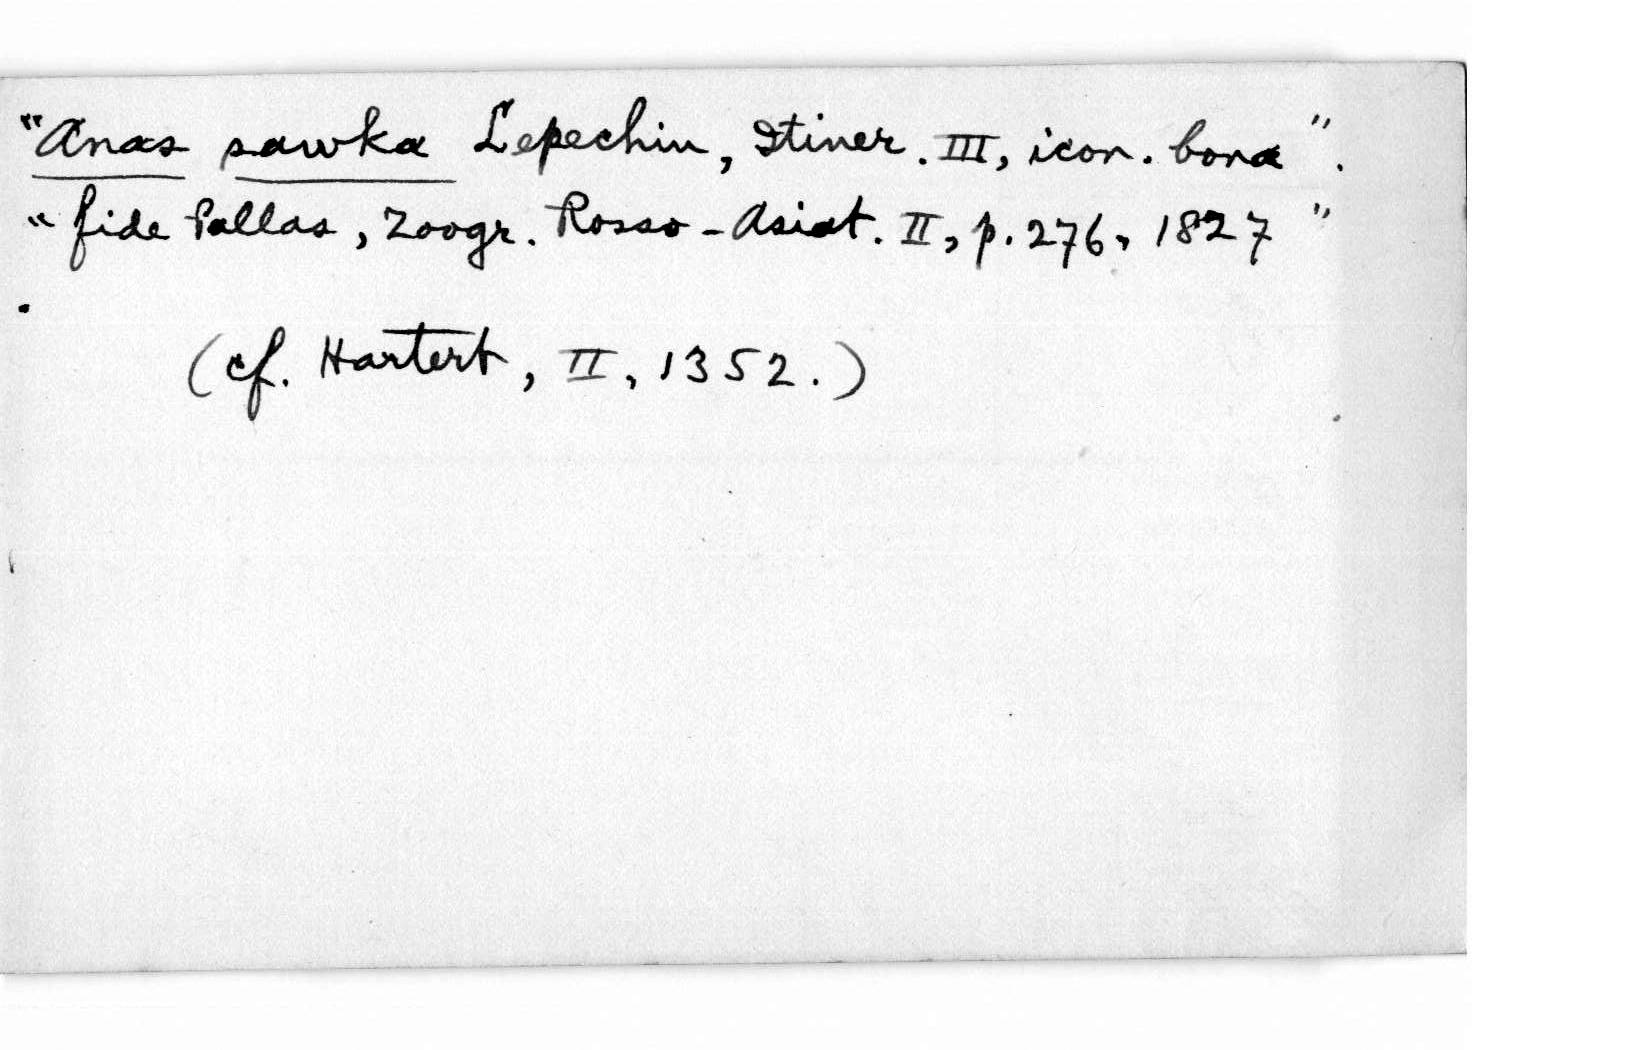 "Anas sawka Lepechin, Itiner. III, icon. bona".
"fide Pallas, Zoogr. Rosso-Asiat. II, p. 276, 1827"
(cf. Hartert, II, 1352.)